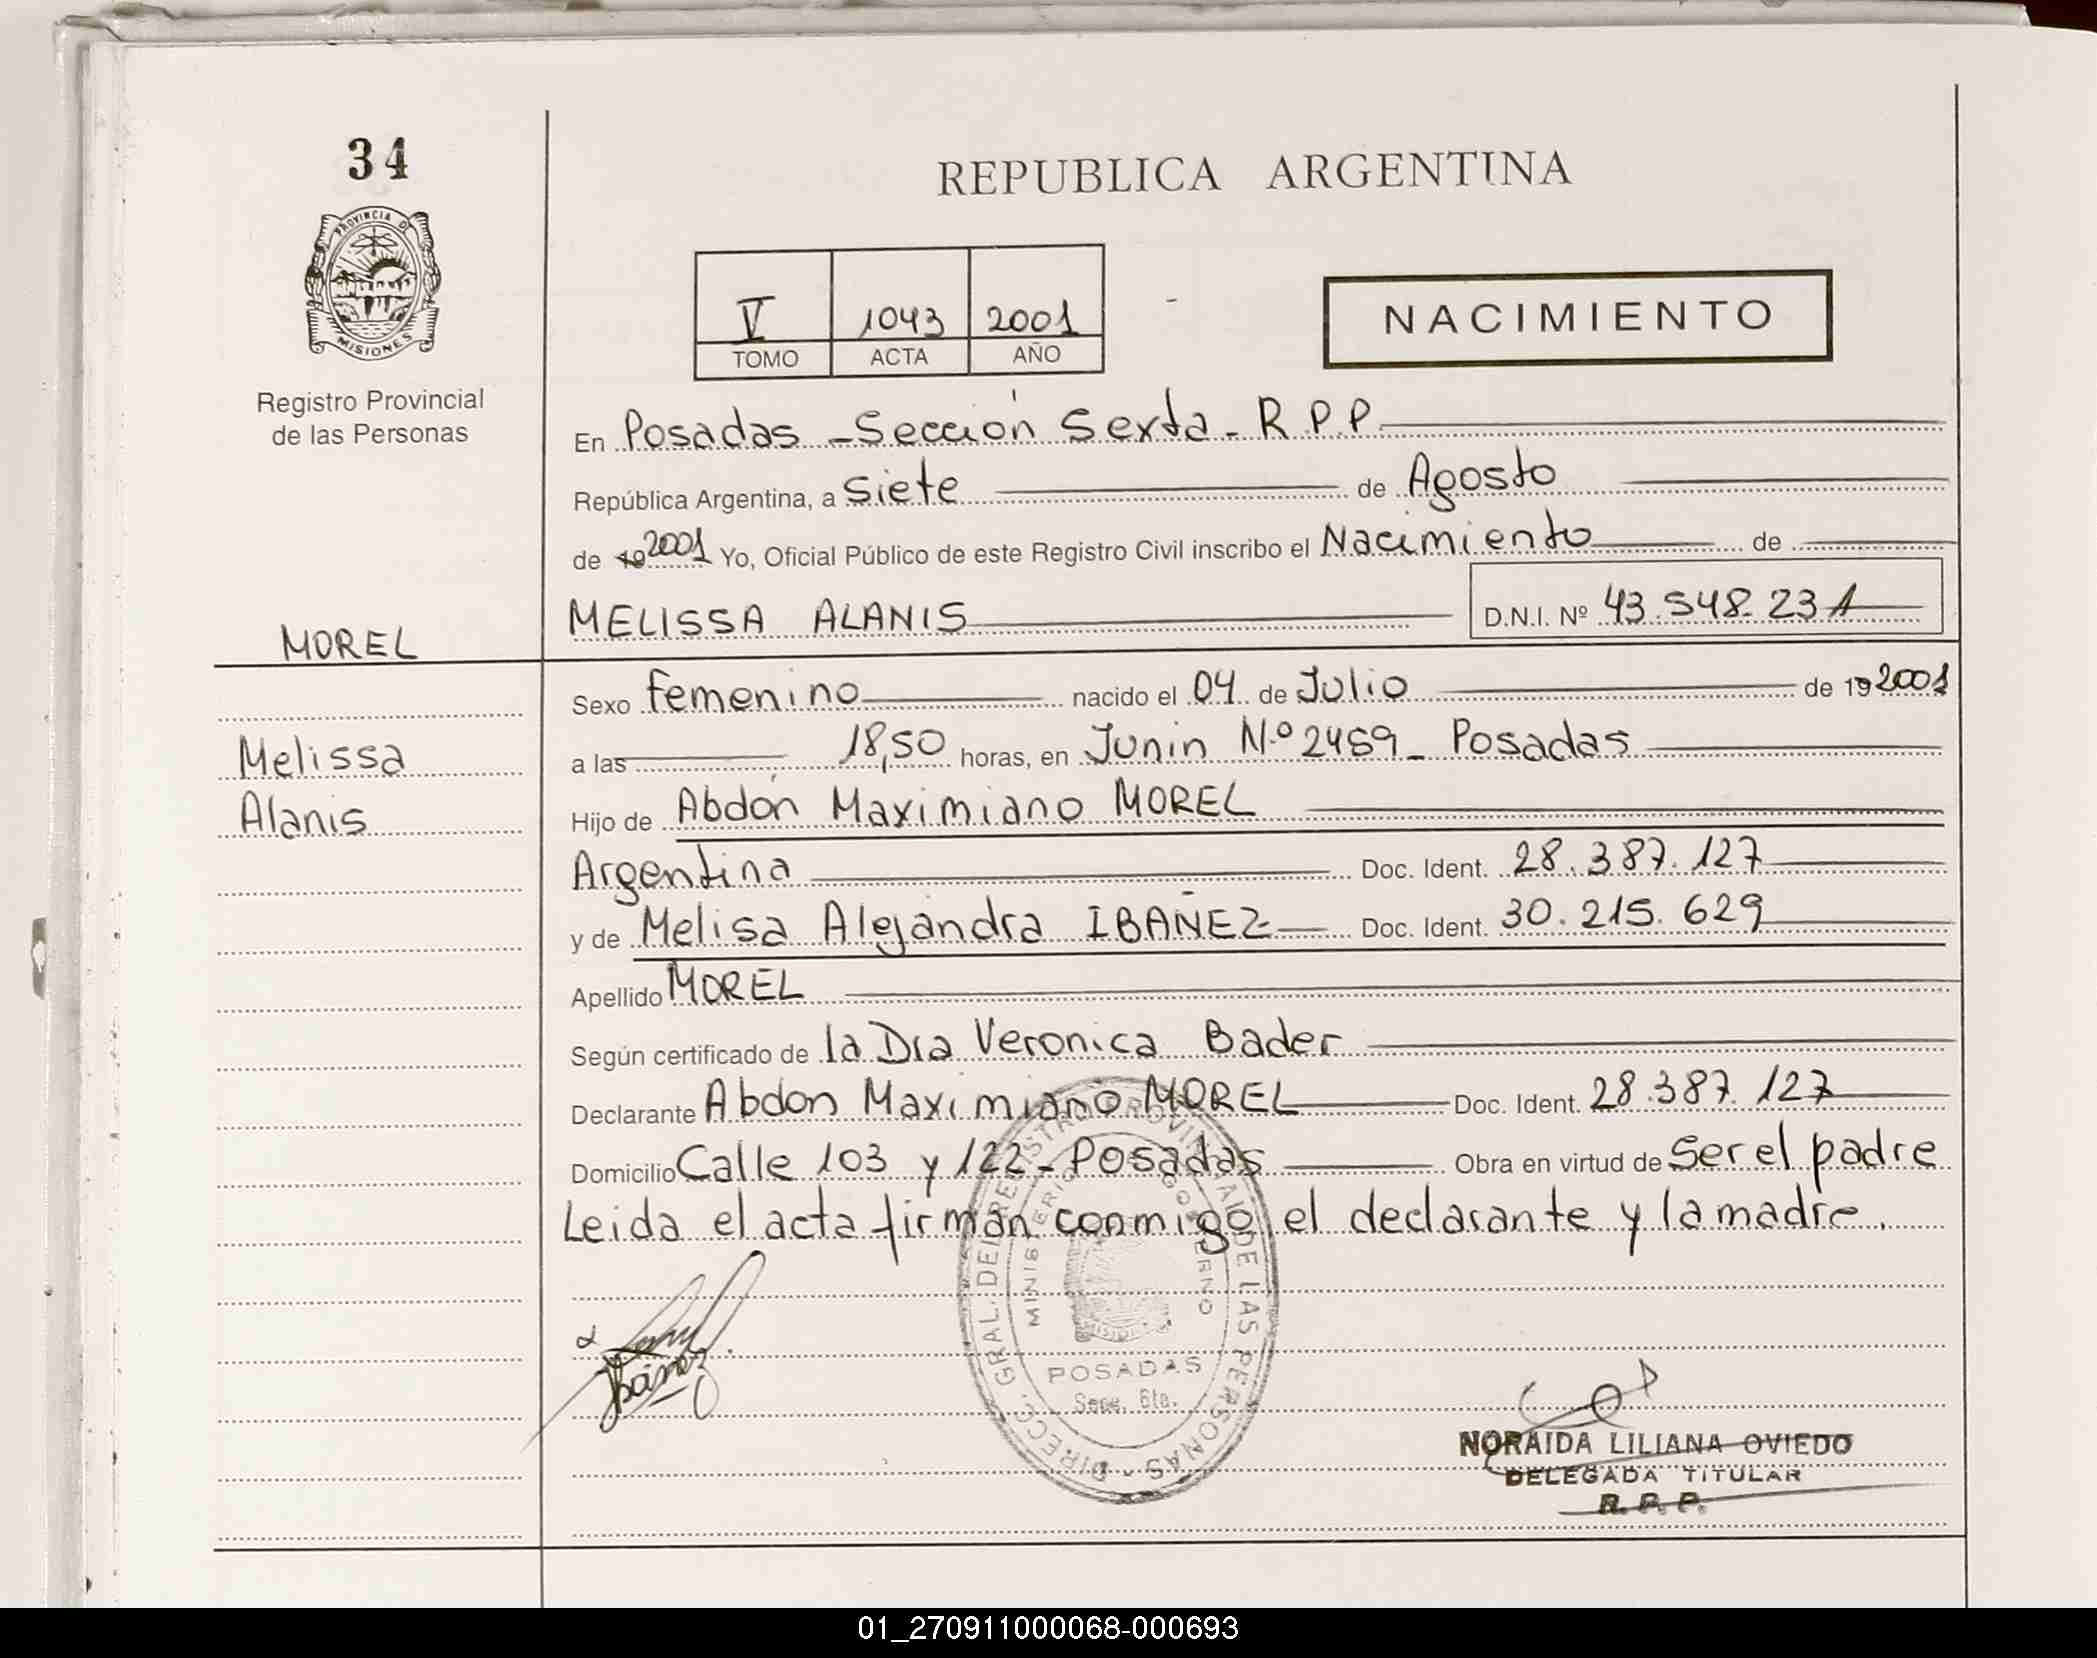 34
REPUBLICA ARGENTINA
PROVINCIA D
MISIONES
Registro Provincial
de las Personas
V 1043 2001
TOMO ACTA AÑO
NACIMIENTO
En Posadas - Sección Sexta - R.P.P.
República Argentina, a Siete de Agosto
de 19 2001 Yo, Oficial Público de este Registro Civil inscribo el Nacimiento de
MELISSA ALANIS D.N.I. Nº 43.548.231
MOREL
Sexo femenino nacido el 04 de Julio de 19 2001
Melissa
a las 18,50 horas, en Junin N.º 2469 - Posadas
Alanis
Hijo de Abdón Maximiano MOREL
Argentina Doc. Ident. 28.387.127
y de Melisa Alejandra IBAÑEZ Doc. Ident. 30.215.629
Apellido MOREL
Según certificado de la Dra Veronica Bader
Declarante Abdon Maximiano MOREL Doc. Ident. 28.387.127
Domicilio Calle 103 y 122 - Posadas Obra en virtud de Ser el padre
Leida el acta firman conmigo el declarante y la madre.
Ibánez
DIRECC. GRAL. DEL REGISTRO PROVINCIAL DE LAS PERSONAS -
MINISTERIO GOBIERNO
POSADAS
Secc. 6ta.
NORAIDA LILIANA OVIEDO
DELEGADA TITULAR
R. P. P.
01_270911000068-000693